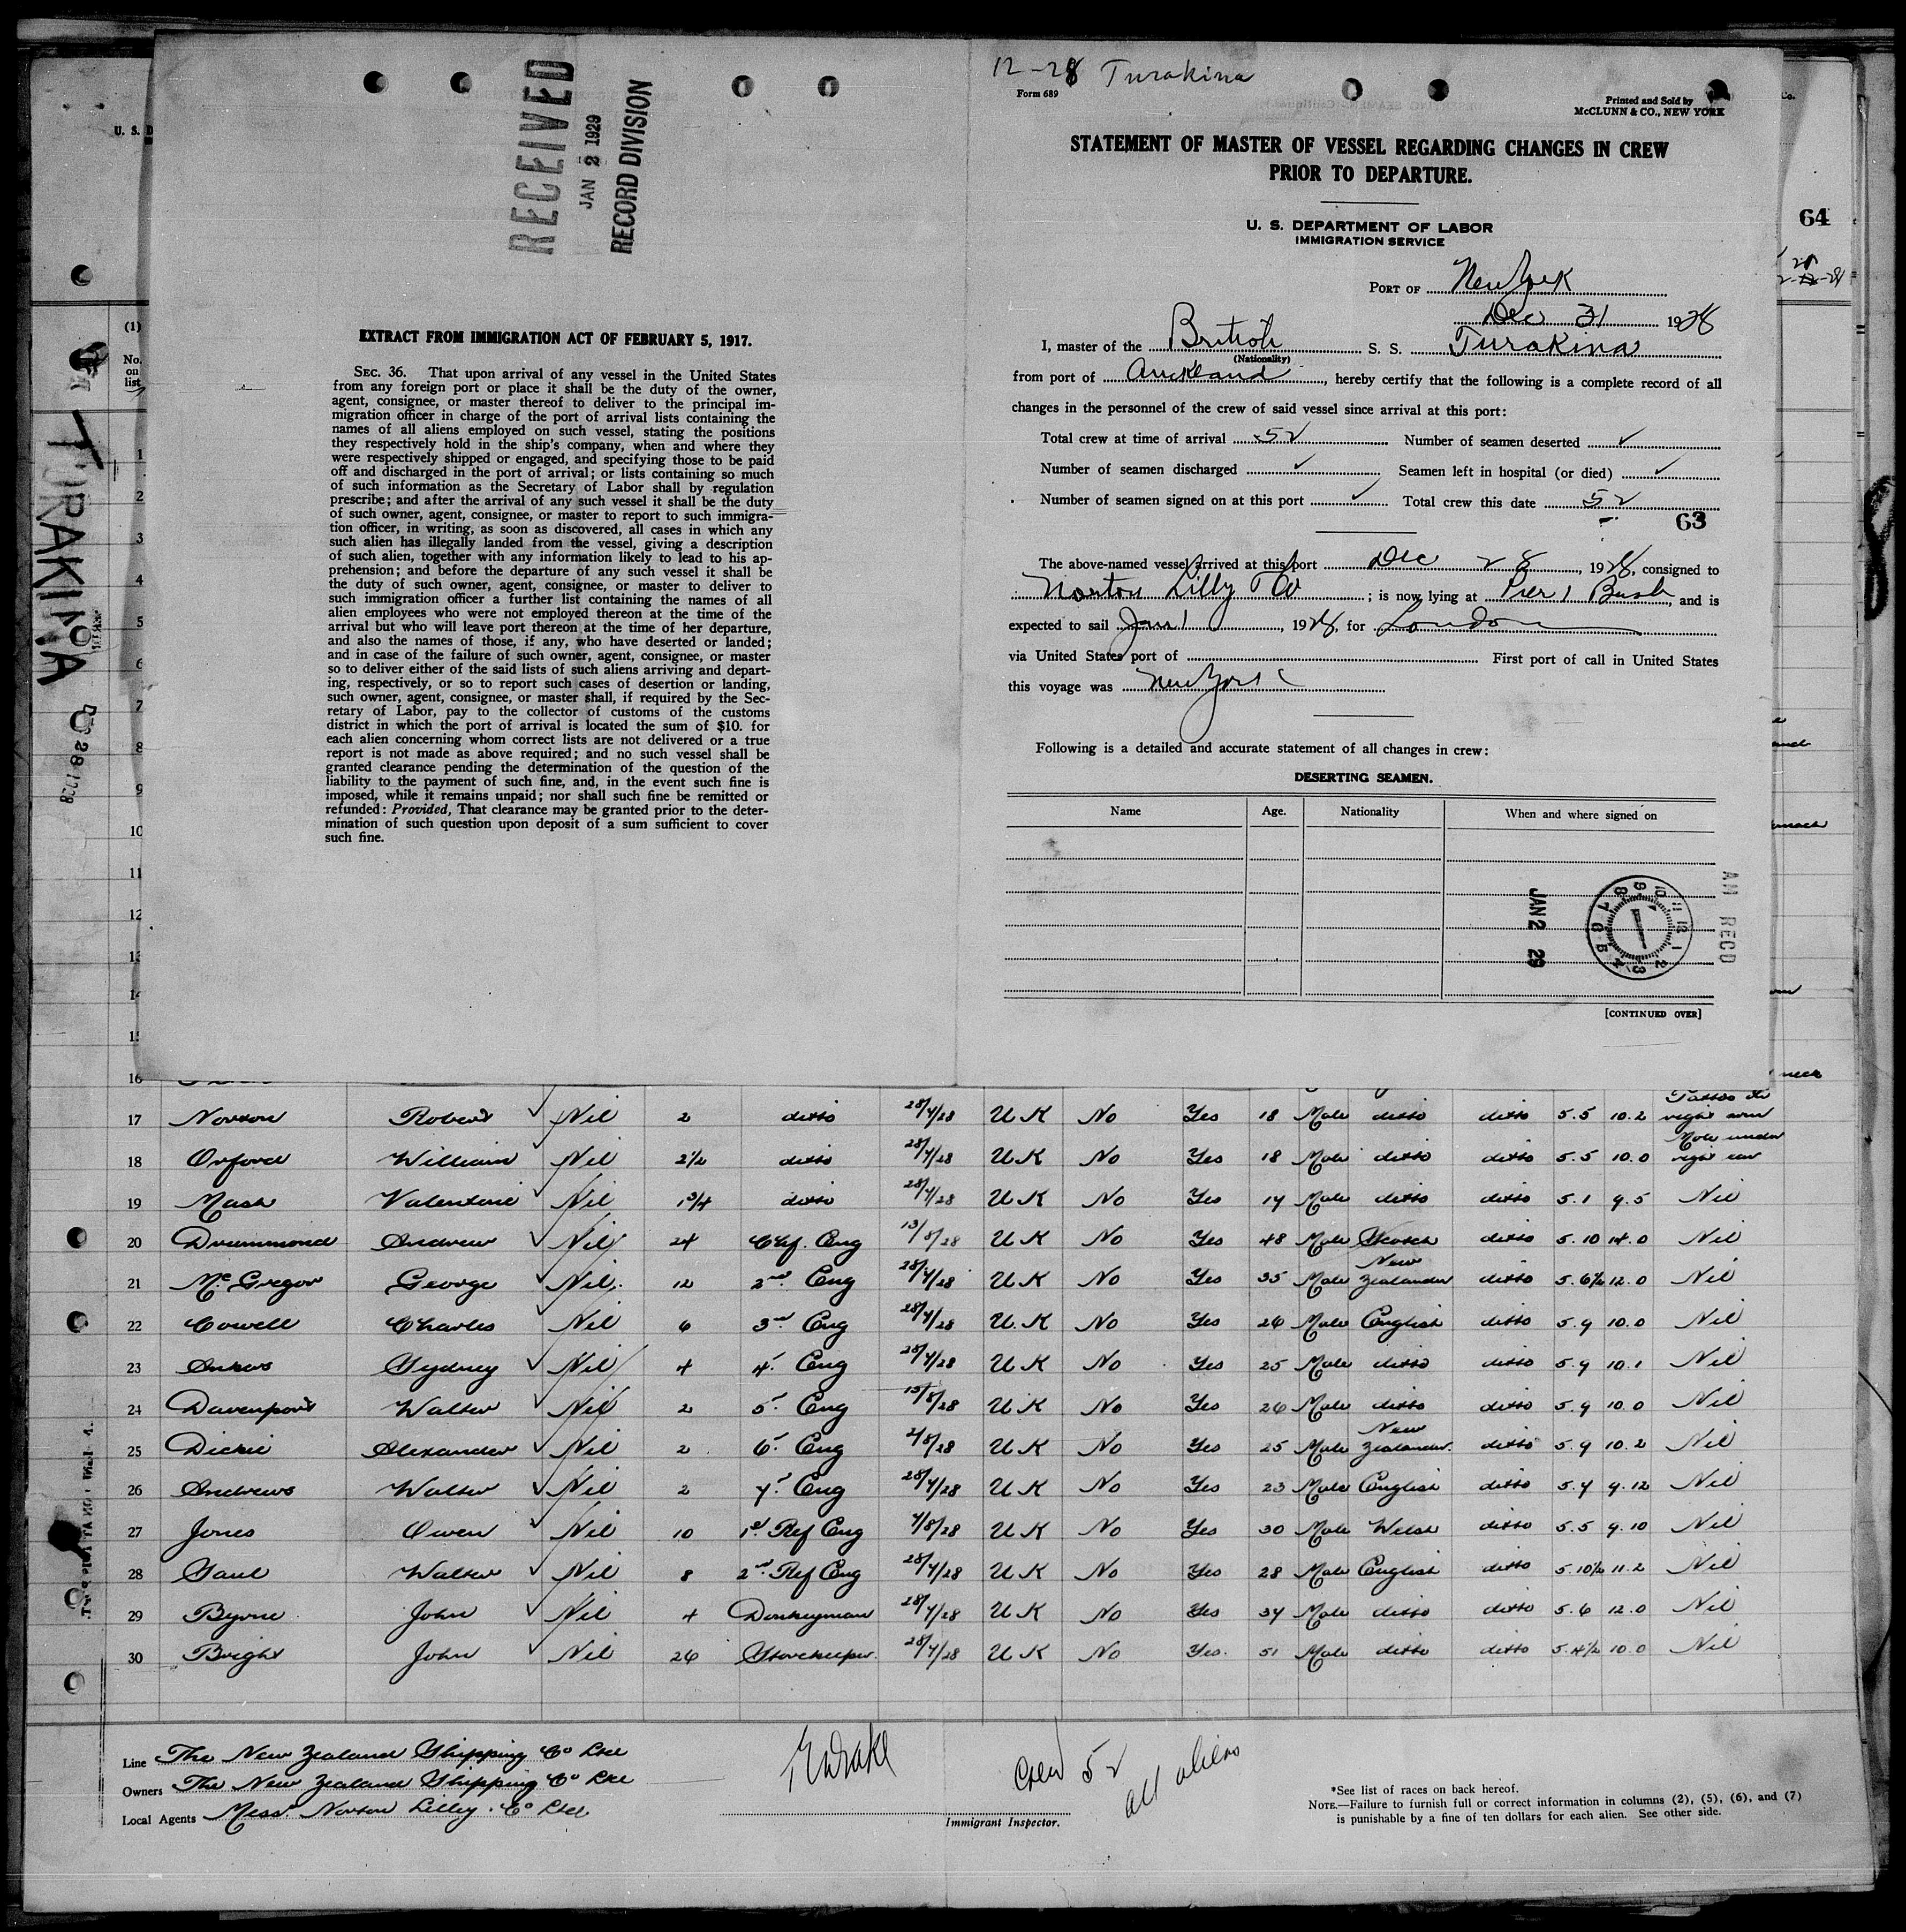 RECEIVED
JAN 2 1929
RECORD DIVISION
EXTRACT FROM IMMIGRATION ACT OF FEBRUARY 5, 1917.
SEC. 36. That upon arrival of any vessel in the United States
from any foreign port or place it shall be the duty of the owner,
agent, consignee, or master thereof to deliver to the principal im-
migration officer in charge of the port of arrival lists containing the
names of all aliens employed on such vessel, stating the positions
they respectively hold in the ship's company, when and where they
were respectively shipped or engaged, and specifying those to be paid
off and discharged in the port of arrival; or lists containing so much
of such information as the Secretary of Labor shall by regulation
prescribe; and after the arrival of any such vessel it shall be the duty
of such owner, agent, consignee, or master to report to such immigra-
tion officer, in writing, as soon as discovered, all cases in which any
such alien has illegally landed from the vessel, giving a description
of such alien, together with any information likely to lead to his ap-
prehension; and before the departure of any such vessel it shall be
the duty of such owner, agent, consignee, or master to deliver to
such immigration officer a further list containing the names of all
alien employees who were not employed thereon at the time of the
arrival but who will leave port thereon at the time of her departure,
and also the names of those, if any, who have deserted or landed;
and in case of the failure of such owner, agent, consignee, or master
so to deliver either of the said lists of such aliens arriving and depart-
ing, respectively, or so to report such cases of desertion or landing,
such owner, agent, consignee, or master shall, if required by the Sec-
retary of Labor, pay to the collector of customs of the customs
district in which the port of arrival is located the sum of $10. for
each alien concerning whom correct lists are not delivered or a true
report is not made as above required; and no such vessel shall be
granted clearance pending the determination of the question of the
liability to the payment of such fine, and, in the event such fine is
imposed, while it remains unpaid; nor shall such fine be remitted or
refunded: Provided, That clearance may be granted prior to the deter-
mination of such question upon deposit of a sum sufficient to cover
such fine.
12-28 Turakina
Form 689
Printed and Sold by
McCLUNN & CO., NEW YORK
STATEMENT OF MASTER OF VESSEL REGARDING CHANGES IN CREW
PRIOR TO DEPARTURE.
U. S. DEPARTMENT OF LABOR
IMMIGRATION SERVICE
PORT OF New York
Dec 31 1928
I, master of the British S. S. Turakina
(Nationality)
from port of Auckland, hereby certify that the following is a complete record of all
changes in the personnel of the crew of said vessel since arrival at this port:
Total crew at time of arrival 52 Number of seamen deserted ✓
Number of seamen discharged ✓ Seamen left in hospital (or died) ✓
Number of seamen signed on at this port ✓ Total crew this date 52
63
The above-named vessel arrived at this port Dec 28, 1928, consigned to
Norton Lilly & Co; is now lying at Pier 1 Bush, and is
expected to sail Jan 1, 1928, for London
via United States port of First port of call in United States
this voyage was New York
Following is a detailed and accurate statement of all changes in crew:
DESERTING SEAMEN.
Name Age. Nationality When and where signed on
JAN 2 29
AM RECD
[CONTINUED OVER]
64
U. S. D
(1)
No.
on
list
TURAKINA
DEC 28 1928
1
2
3
4
5
6
7
8
9
10
11
12
13
14
15
16
17 Norton Robert ✓ Nil 2 ditto 28/7/28 U K No Yes 18 Male ditto ditto 5.5 10.2 Tattoo on right arm
18 Orford William ✓ Nil 2½ ditto 28/7/28 U K No Yes 18 Male ditto ditto 5.5 10.0 Mole under right ear
19 Mash Valentine ✓ Nil 1¾ ditto 28/7/28 U K No Yes 17 Male ditto ditto 5.1 9.5 Nil
20 Drummond Andrew ✓ Nil 24 Chf. Eng 13/8/28 U K No Yes 48 Male Scotch ditto 5.10 14.0 Nil
21 McGregor George ✓ Nil 12 2nd Eng 28/7/28 U K No Yes 35 Male New Zealander ditto 5.6½ 12.0 Nil
22 Cowell Charles ✓ Nil 6 3rd Eng 28/7/28 U.K No Yes 26 Male English ditto 5.9 10.0 Nil
23 Sydney ✓ Nil 4 4 Eng 28/7/28 U K No Yes 25 Male ditto ditto 5.9 10.1 Nil
24 Davenport Walter ✓ Nil 2 5 Eng 15/8/28 U K No Yes 26 Male ditto ditto 5.9 10.0 Nil
25 Dickie Alexander ✓ Nil 2 6 Eng 2/8/28 U K No Yes 25 Male New Zealander ditto 5.9 10.2 Nil
26 Andrews Walter ✓ Nil 2 7 Eng 28/7/28 U K No Yes 23 Male English ditto 5.7 9.12 Nil
27 Jones Owen ✓ Nil 10 1st Ref Eng 7/8/28 U K No Yes 30 Male Welsh ditto 5.5 9.10 Nil
28 Gaul Walter ✓ Nil 8 2nd Ref Eng 28/7/28 U K No Yes 28 Male English ditto 5.10½ 11.2 Nil
29 Byrne John ✓ Nil 4 Donkeyman 28/7/28 U K No Yes 37 Male ditto ditto 5.6 12.0 Nil
30 Bright John ✓ Nil 26 Storekeeper 28/7/28 U K No Yes 51 Male ditto ditto 5.4½ 10.0 Nil
Line The New Zealand Shipping Co Ltd
Owners The New Zealand Shipping Co Ltd
Local Agents Messrs Norton Lilly Co Ltd
Crew 52
all aliens
Immigrant Inspector.
*See list of races on back hereof.
NOTE.—Failure to furnish full or correct information in columns (2), (5), (6), and (7)
is punishable by a fine of ten dollars for each alien. See other side.